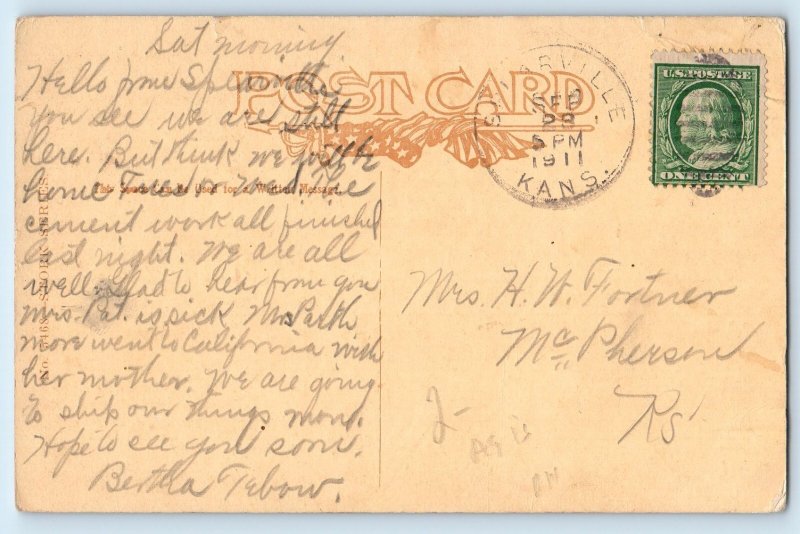 Sat morning
Hello from Spearville
you see we are still
here. But think we will be
home Tues or Wed. The
cement work all finished
last night. We are all
well. Glad to hear from you
Mrs. is sick Mrs
more went to California with
her mother. We are going
to ship our things mon.
Hope to see you soon.
Bertha Tebow.
POST CARD
This Space Can Be Used for a Written Message.
STORK SERIES
SPEARVILLE
SEP
28
5 PM
1911
KANS.
U.S. POSTAGE
ONE CENT
Mrs. H. W. Fortner
McPherson
Ks
2-